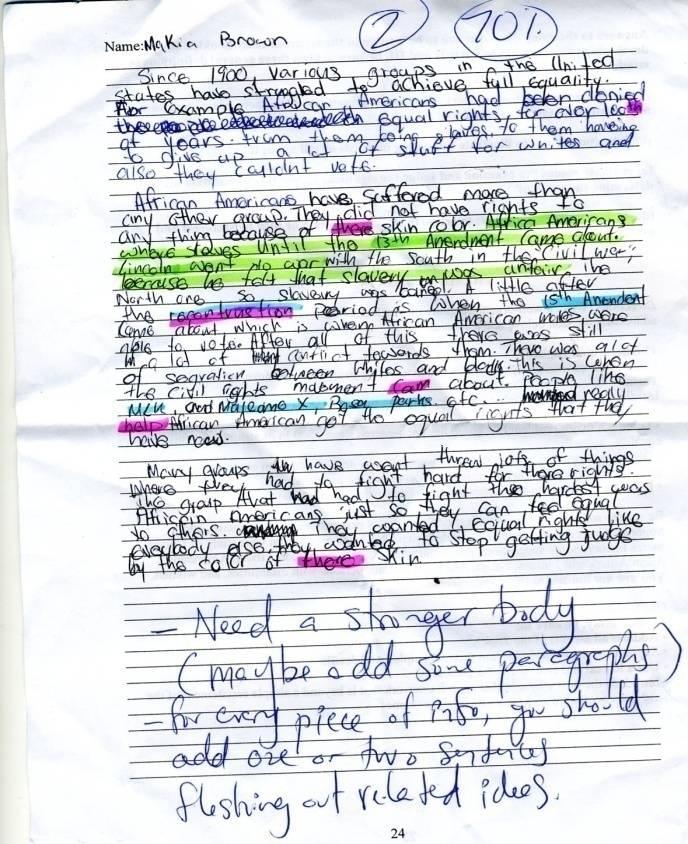 2 70%
Name: Makia Brown
Since 1900, various groups in the United
states have struggled to achieve full equality.
For example African Americans had been denied
equal rights, for over 100th
of years. From them being slaves, to them haveing
to give up a lot of stuff for whites and
also they couldnt vote.
African Americans have suffered more than
any other group. They did not have rights to
any thing because of there skin color. Africa Americans
where slaves until the 13th Amendment came about.
Lincoln went to war with the south in the Civil war,
because he felt that slavery was unfair, the
North one so slavery was baned. A little after
the period is when the 15th Amendent
came about which is when African American males were
able to vote. After all of this there was still
a lot of conflict towards them. There was alot
of between whites and This is when
the civil rights cam about. People like
MLK, and X, Rosa parks etc... really
help African American get the equal rights that they
have now.
Many groups have went threw lots of things
where they had to fight hard for there rights.
the group that had to fight the hardest was
Americans just so they can feel equal
to others. They wanted equal rights like
everybody else, they wanted to stop getting judge
by the color of there skin.
- Need a stronger body
(maybe add some paragraphs)
- for every piece of info, you should
add one or two sentences
fleshing out related ideas.
24